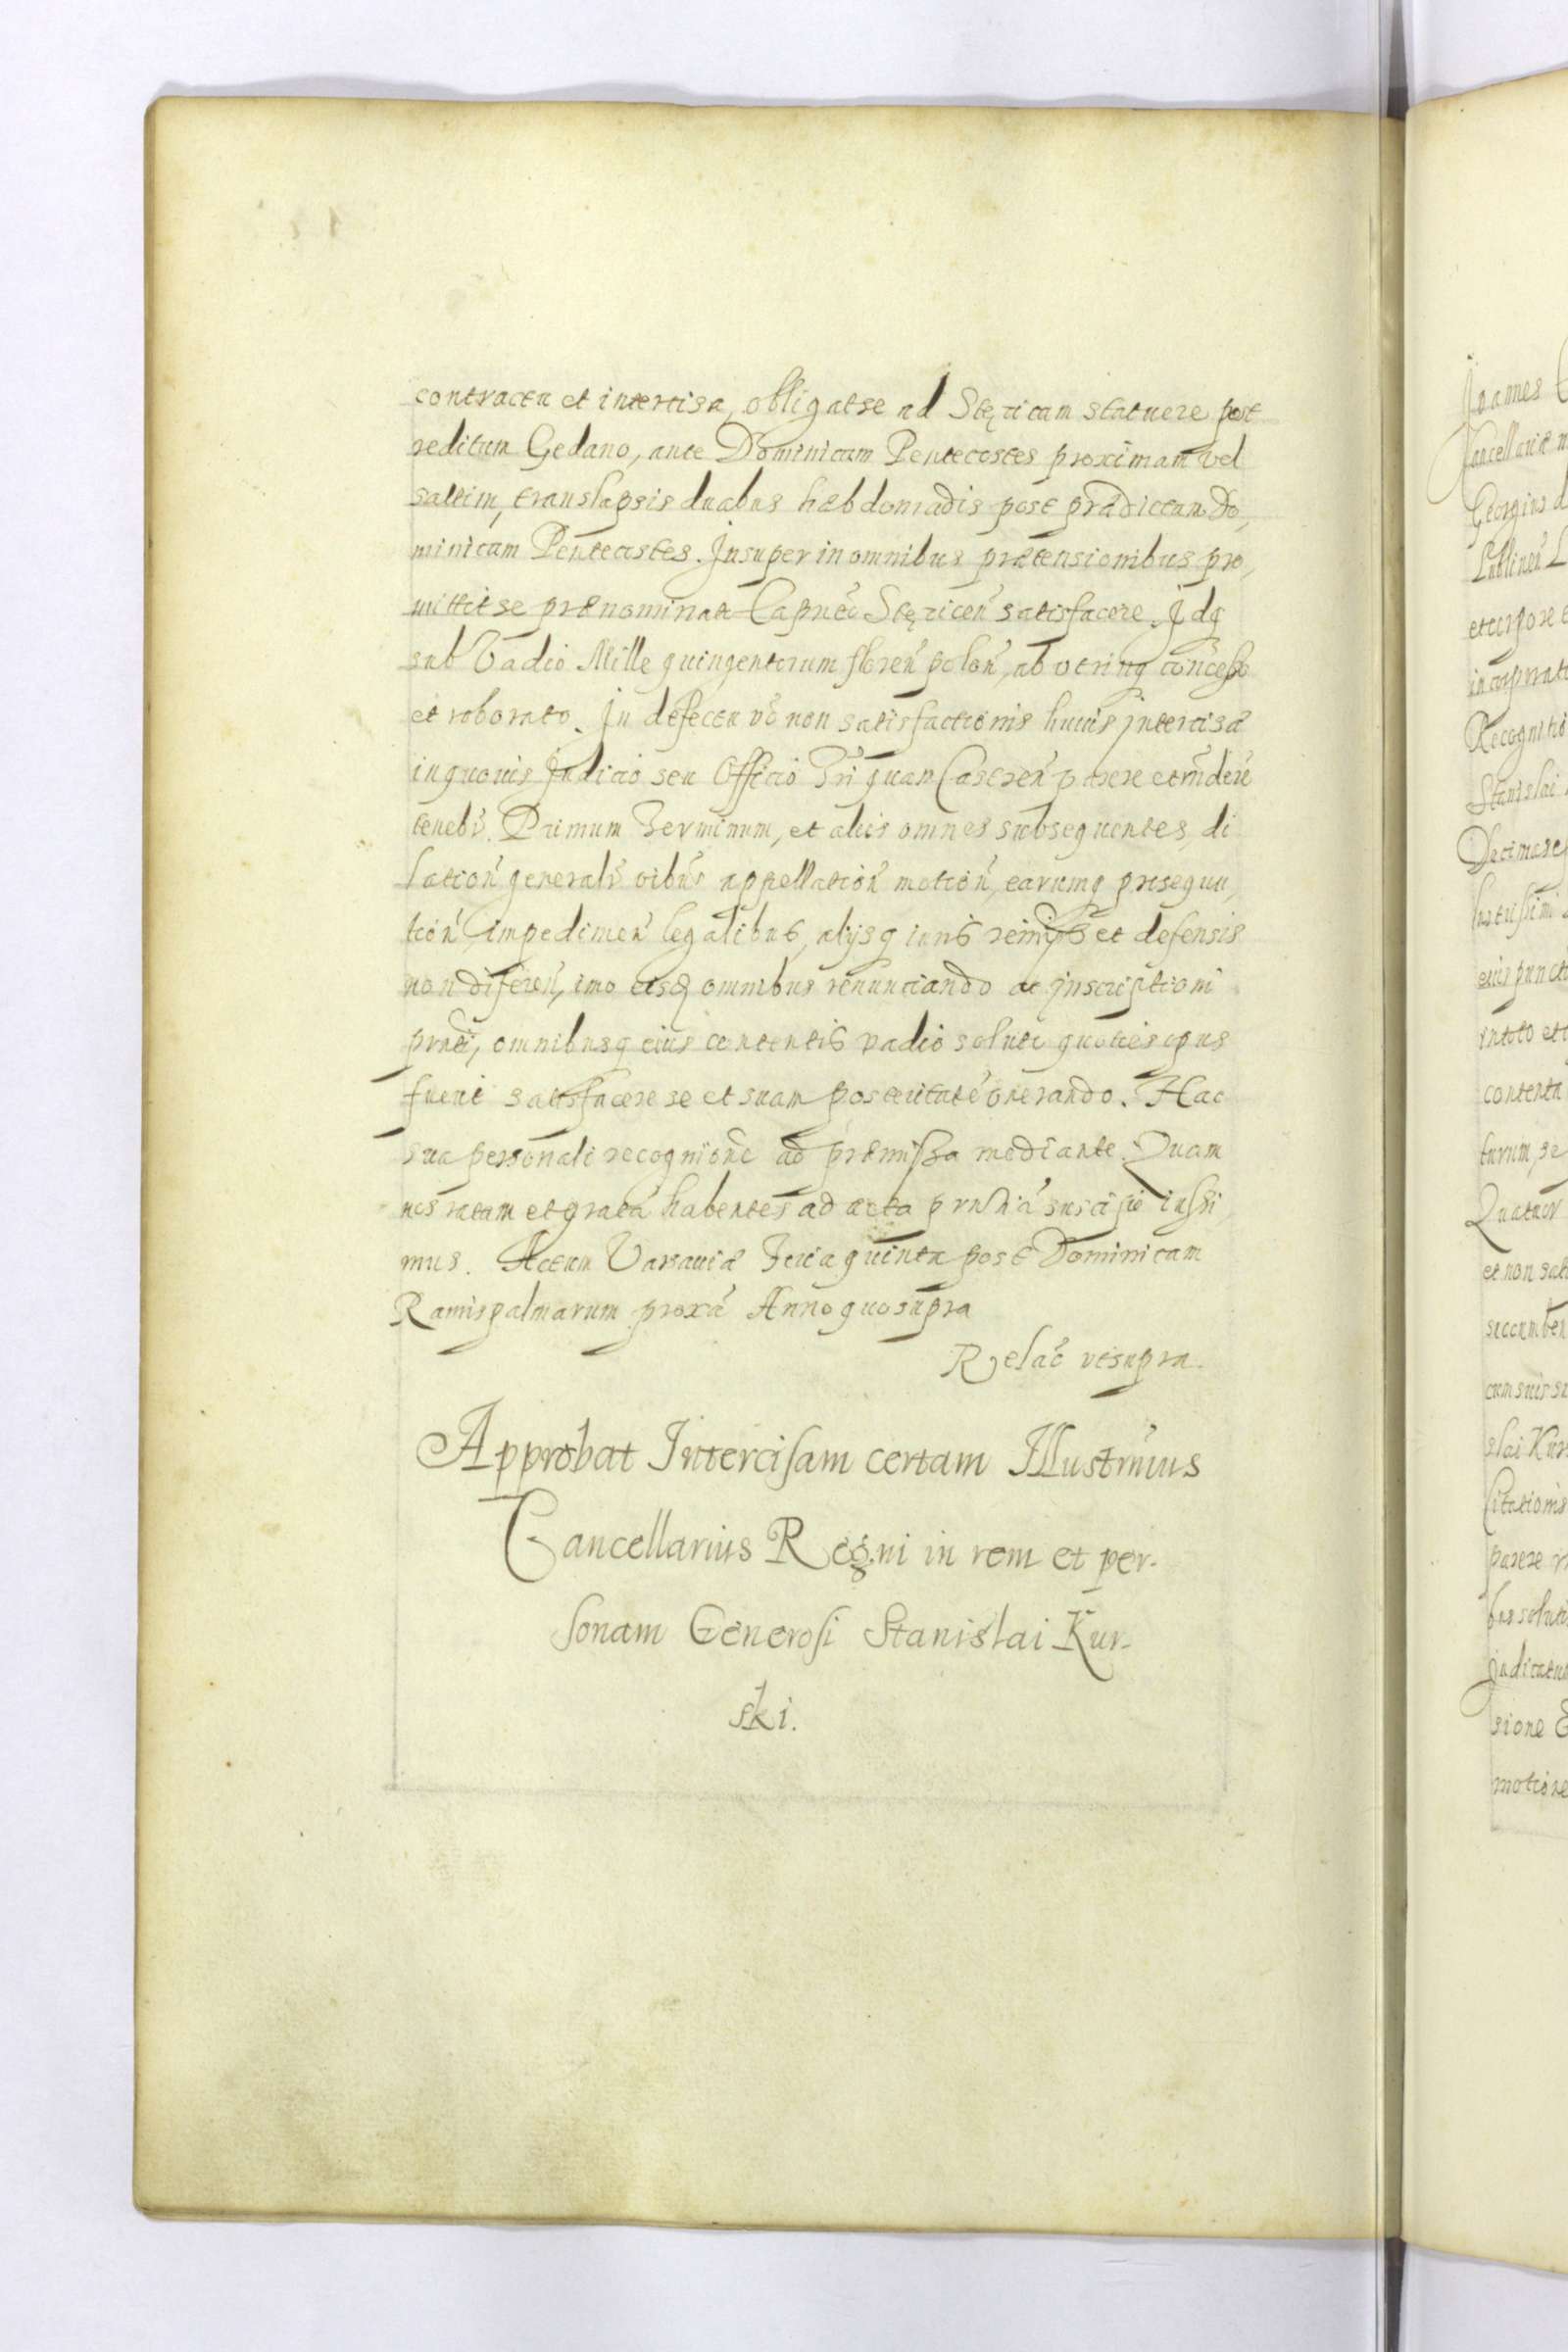 contractu et intercisa, obligat se ad Stęzicam statuere post
reditum Gedano, ante Dominicam Pentecostes proximam vel
saltim, translapsis duabus hæbdomadis post prædictam Do,
minicam Pentecostes. Insuper in omnibus prætensionibus pro,
mittit se prænominato Stęzicen̄ satisfacere. Idq
sub Vadio Mille quingentorum floren̄ polon̄, ab utrinq concesso
et roborato. In defectu vō non satisfactionis huius intercisæ
in quovis Judicio seu Officio Tri quam Castren̄ parere et rn̄dere
tenebr̄. Primum Terminum, et alios omnes subsequentes, di
lation̄ generalr̄ oibus appellation̄ motion̄, earumq prosequu,
tion̄, impedimen̄ legalibus, alijsq iuris remijs et defensis
non differen̄, imo eisq omnibus renunciando ac inscriptioni
prnti, omnibusq eius contentis vadio soluto quoties opus
fuerit satisfacere se et suam posteritatē onerando. Hac
sua personali recognione ad præmissa mediante. Quam
nos ratam et gratā habentes ad acta prnia suscipi iussi
mus. Actum Varsaviæ Feria quinta post Dominicam
Ramispalmarum proxā Anno quo supra
Relaō ut supra.
Approbat Intercisam certam Illustrmus
Cancellarius Regni in rem et per-
sonam Generosi Stanislai Kur-
ski.
Joannes
Cancellariæ
Georgius
Lublinen̄
et corpore
incorporat
Recognitio
Stanislai
eius punct
in toto et
contenta
turum, se
Quatuor
et non sat
succumben
cum suis
slai Kur
citationis
parere
soluti
judicatu
sione
motione